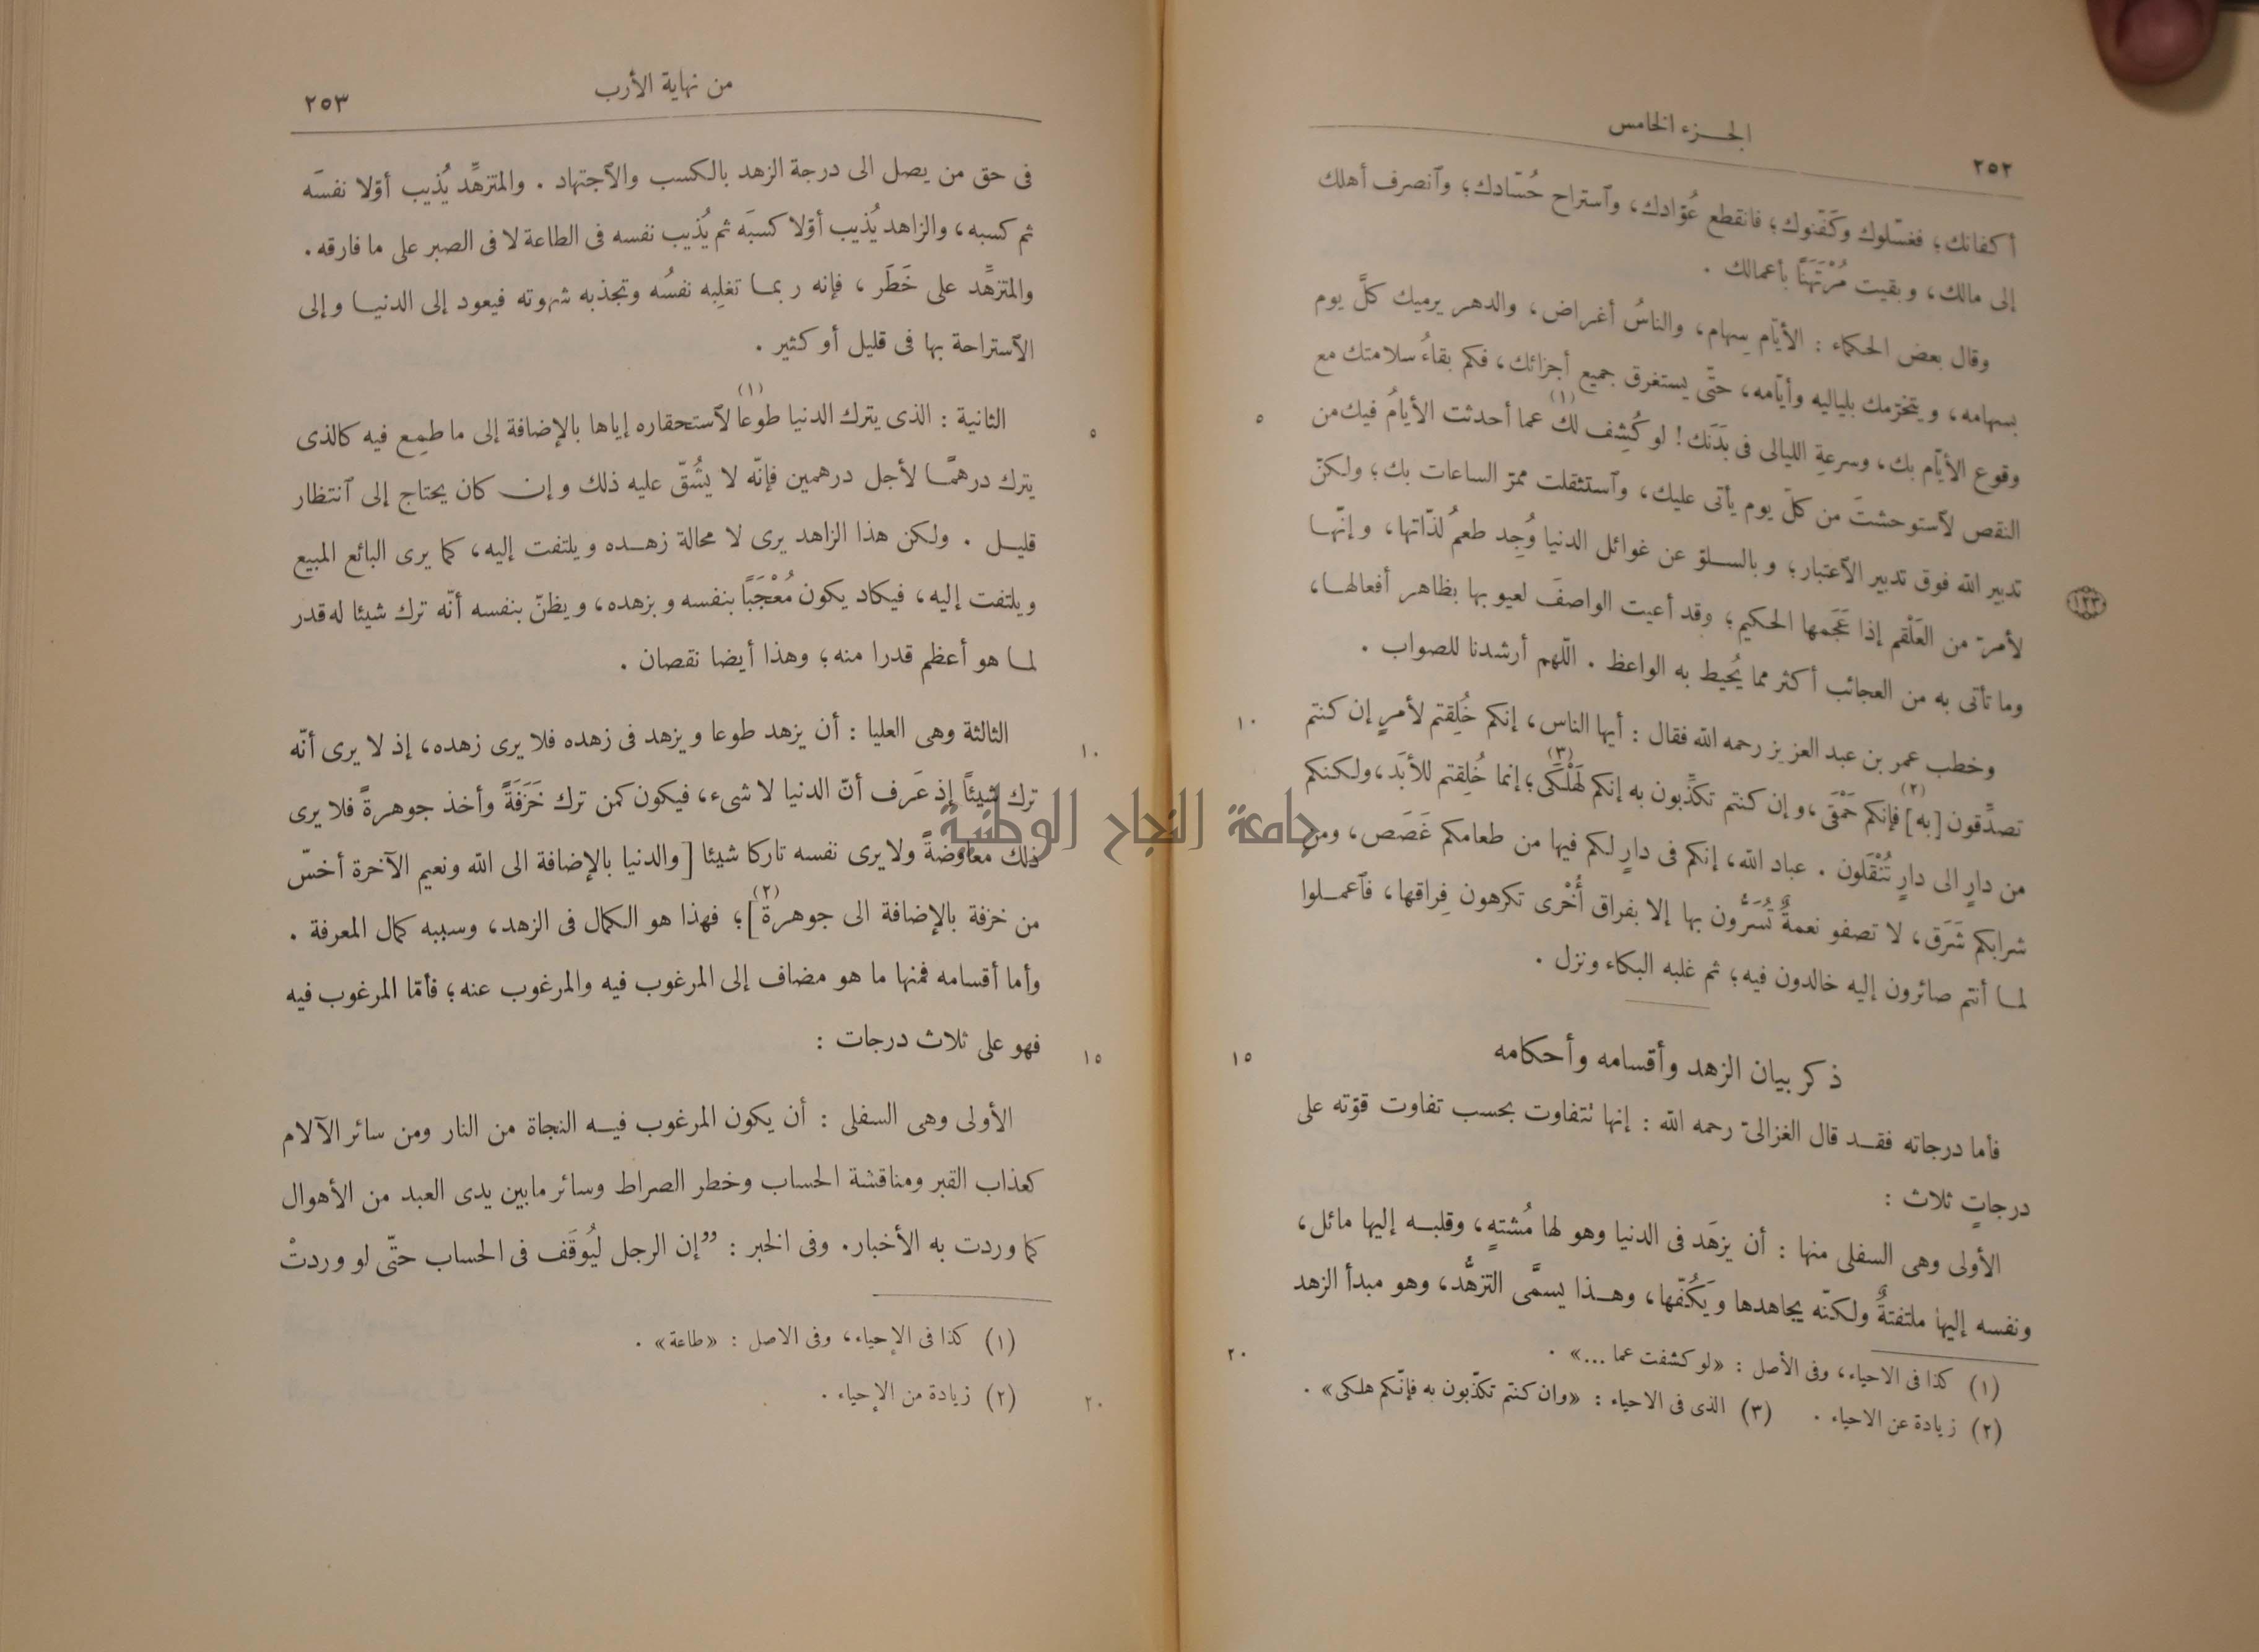 ٢٥٢
الجزء الخامس
أكفانك؛ فغسّلوك وكَفّنوك؛ فانقطع عُوّادك، وٱستراح حُسّادك؛ وٱنصرف أهلك
إلى مالك، وبقيت مُرْتَهَنًا بأعمالك .
وقال بعض الحكماء : الأيّام سِهام، والناسُ أغراض، والدهر يرميك كلَّ يوم
بسهامه، ويتخرّمك بلياليه وأيّامه، حتّى يستغرق جميع أجزائك، فكم بقاءُ سلامتك مع
٥
وقوع الأيّام بك، وسرعةِ الليالى فى بَدَنك! لو كُشِف لك (١) عما أحدثت الأيامُ فيك من
النقص لٱستوحشتَ من كلّ يوم يأتى عليك، وٱستثقلت ممرّ الساعات بك؛ ولكنّ
تدبير الله فوق تدبير الٱعتبار؛ وبالسلوّ عن غوائل الدنيا وُجِد طعمُ لذّاتها، وإنّها
١٢٣
لأمرّ من العَلْقم إذا عَجَمها الحكيم؛ وقد أعيت الواصفَ لعيوبها بظاهر أفعالها،
وما تأتى به من العجائب أكثر مما يُحيط به الواعظ . اللّهم أرشدنا للصواب .
١٠
وخطب عمر بن عبد العزيز رحمه الله فقال : أيها الناس، إنكم خُلِقتم لأمرٍ إن كنتم
تصدِّقون [به] (٢) فإنكم حَمْقَى، وإن كنتم تكذِّبون به إنكم لَهَلْكَى (٣)؛ إنما خُلِقتم للأبَد، ولكنكم
من دارٍ الى دارٍ تُنْقَلون . عباد الله، إنكم فى دارٍ لكم فيها من طعامكم غَصَص، ومن
شرابكم شَرَق، لا تصفو نعمةٌ تُسَرُّون بها إلا بفراق أُخْرى تكرهون فِراقها، فٱعملوا
لما أنتم صائرون إليه خالدون فيه؛ ثم غلبه البكاء ونزل .
١٥
ذكر بيان الزهد وأقسامه وأحكامه
فأما درجاته فقد قال الغزالىّ رحمه الله : إنها تتفاوت بحسب تفاوت قوّته على
درجاتٍ ثلاث :
الأولى وهى السفلى منها : أن يزهَد فى الدنيا وهو لها مُشتهٍ، وقلبه إليها مائل،
ونفسه إليها ملتفتةٌ ولكنّه يجاهدها ويَكُفّها، وهذا يسمَّى التزهُّد، وهو مبدأ الزهد
٢٠
(١) كذا فى الاحياء، وفى الأصل : «لو كشفت عما ...» .
(٢) زيادة عن الاحياء . (٣) الذى فى الاحياء : «وان كنتم تكذّبون به فإنّكم هلكى» .
من نهاية الأرب
٢٥٣
فى حق من يصل الى درجة الزهد بالكسب والٱجتهاد . والمتزهِّد يُذيب أوّلا نفسَه
ثم كسبه، والزاهد يُذيب أوّلا كسبَه ثم يُذيب نفسه فى الطاعة لا فى الصبر على ما فارقه .
والمتزهِّد على خَطَر، فإنه ربما تغلِبه نفسُه وتجذبه شهوته فيعود إلى الدنيا وإلى
الٱستراحة بها فى قليل أو كثير .
٥
الثانية : الذى يترك الدنيا طوعا (١) لٱستحقاره إياها بالإضافة إلى ما طمِع فيه كالذى
يترك درهمًا لأجل درهمين فإنّه لا يشُقّ عليه ذلك وإن كان يحتاج إلى ٱنتظار
قليل . ولكن هذا الزاهد يرى لا محالة زهده ويلتفت إليه، كما يرى البائع المبيع
ويلتفت إليه، فيكاد يكون مُعْجَبًا بنفسه وبزهده، ويظنّ بنفسه أنّه ترك شيئا له قدر
لما هو أعظم قدرا منه؛ وهذا أيضا نقصان .
١٠
الثالثة وهى العليا : أن يزهد طوعا ويزهد فى زهده فلا يرى زهده، إذ لا يرى أنّه
ترك شيئًا إذ عَرف أنّ الدنيا لا شىء، فيكون كمن ترك خَزَفَةً وأخذ جوهرةً فلا يرى
ذلك معاوضةً ولا يرى نفسه تاركا شيئا [والدنيا بالإضافة الى الله ونعيم الآخرة أخسّ
من خزفة بالإضافة الى جوهرة] (٢)؛ فهذا هو الكمال فى الزهد، وسببه كمال المعرفة .
وأما أقسامه فمنها ما هو مضاف إلى المرغوب فيه والمرغوب عنه؛ فأمّا المرغوب فيه
١٥
فهو على ثلاث درجات :
الأولى وهى السفلى : أن يكون المرغوب فيه النجاة من النار ومن سائر الآلام
كعذاب القبر ومناقشة الحساب وخطر الصراط وسائر ما بين يدى العبد من الأهوال
كما وردت به الأخبار. وفى الخبر : ”إن الرجل ليُوقَف فى الحساب حتّى لو وردتْ
(١) كذا فى الإحياء، وفى الاصل : «طاعة» .
٢٠
(٢) زيادة من الإحياء .
جامعة النجاح الوطنية